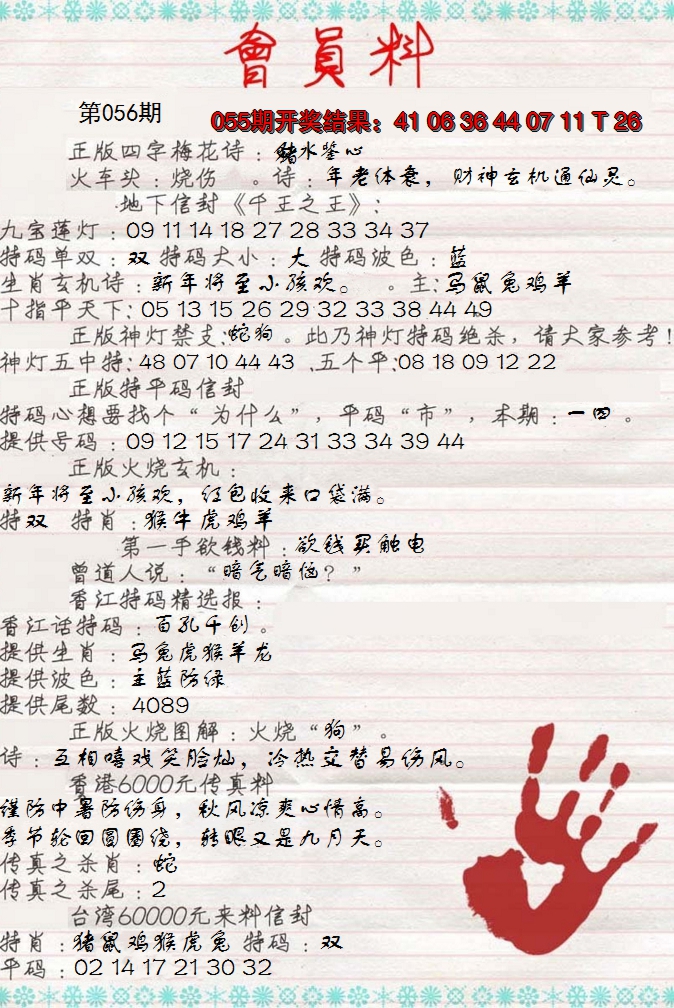 會員料
第056期
055期开奖结果：41 06 36 44 07 11 T 26
正版四字梅花诗：赌水鉴心
火车头：烧伤 。诗：年老体衰，财神玄机通仙灵。
地下信封《千王之王》：
九宝莲灯：09 11 14 18 27 28 33 34 37
特码单双：双 特码大小：大 特码波色：蓝
生肖玄机诗：新年将至小孩欢。 。主：马鼠兔鸡羊
十指平天下：05 13 15 26 29 32 33 38 44 49
正版神灯禁支：蛇狗。此乃神灯特码绝杀，请大家参考！
神灯五中特：48 07 10 44 43 .五个平：08 18 09 12 22
正版特平码信封
特码心想要找个“为什么”，平码“市”，本期：一四。
提供号码：09 12 15 17 24 31 33 34 39 44
正版火烧玄机：
新年将至小孩欢，红包收来口袋满。
特双 特肖：猴牛虎鸡羊
第一手欲钱料：欲钱买触电
曾道人说：“暗气暗恼？”
香江特码精选报：
香江话特码：百孔千创。
提供生肖：马兔虎猴羊龙
提供波色：主蓝防绿
提供尾数：4089
正版火烧图解：火烧“狗”。
诗：互相嘻戏笑脸灿，冷热交替易伤风。
香港6000元传真料
谨防中暑防伤身，秋风凉爽心情高。
季节轮回圆圈绕，转眼又是九月天。
传真之杀肖：蛇
传真之杀尾：2
台湾60000元来料信封
特肖：猪鼠鸡猴虎兔 特码：双
平码：02 14 17 21 30 32